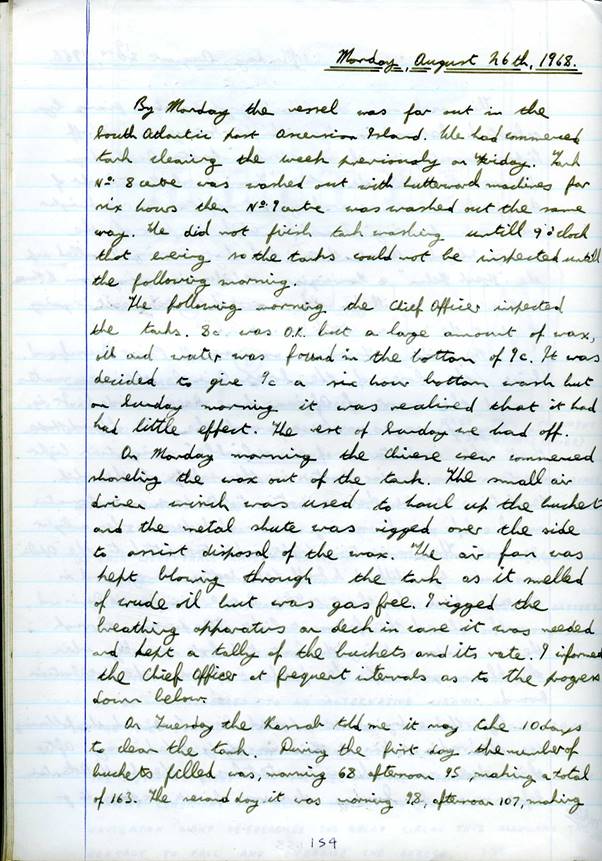 Monday, August 26th, 1968.
By Monday the vessel was far out in the
South Atlantic past Ascension Island. We had commenced
tank cleaning the week previously on Friday. Tank
No. 8 centre was washed out with butterward machines for
six hours then No. 9 centre was washed out the same
way. We did not finish tank washing untill 9 o'clock
that evening so the tanks could not be inspected untill
the following morning.
The following morning the Chief Officer inspected
the tanks. 8c. was O.K. but a large amount of wax,
oil and water was found in the bottom of 9c. It was
decided to give 9c a six hour bottom wash but
on Sunday morning it was realised that it had
had little effect. The rest of Sunday we had off.
On Monday morning the Chinese crew commenced
shoveling the wax out of the tank. The small air
driven winch was used to haul up the buckets
and the metal shute was rigged over the side
to assist disposal of the wax. The air fan was
kept blowing through the tank as it smelled
of crude oil but was gas free. I rigged the
breathing apparatus on deck in case it was needed
and kept a tally of the buckets and its rate. I informed
the Chief Officer at frequent intervals as to the progress
down below.
On Tuesday the told me it may take 10 days
to clean the tank. During the first day the number of
buckets filled was, morning 68 afternoon 95, making a total
of 163. The second day it was morning 98, afternoon 107, making
154